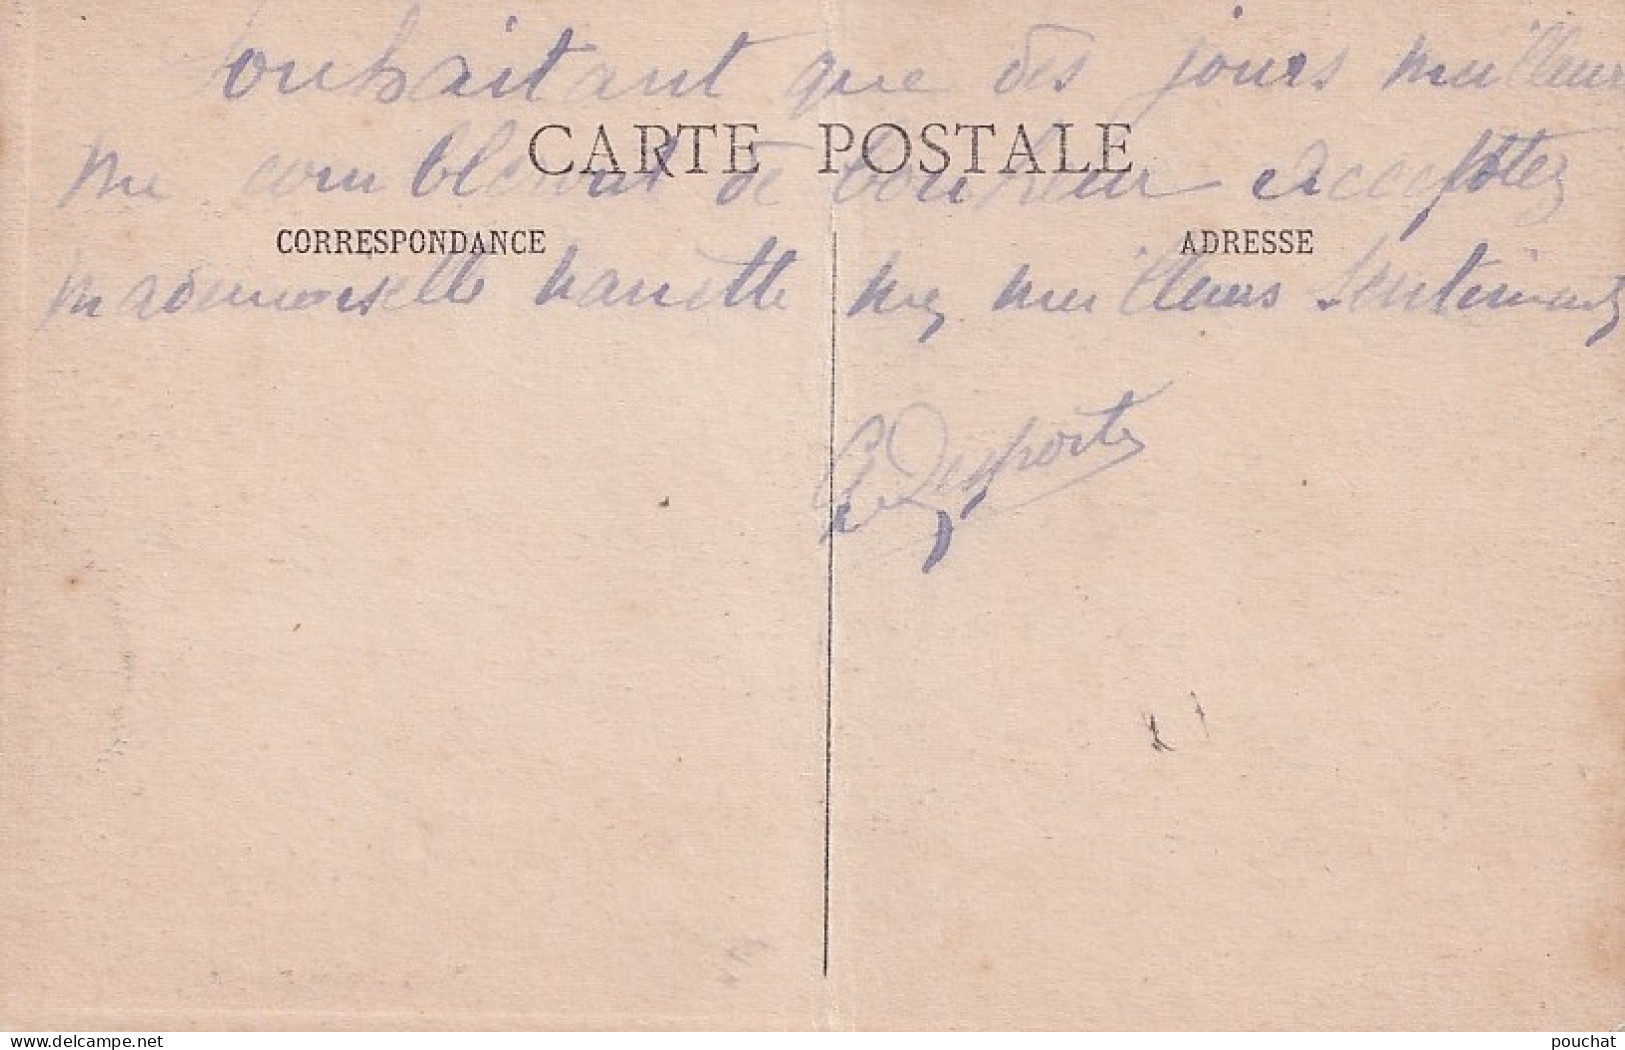 Souhaitant que des jours meilleurs
me combleront de bonheur acceptez
CARTE POSTALE
CORRESPONDANCE
ADRESSE
mademoiselle nanette mes meilleurs sentiments
G Desportes
www.delcampe.net
pouchat